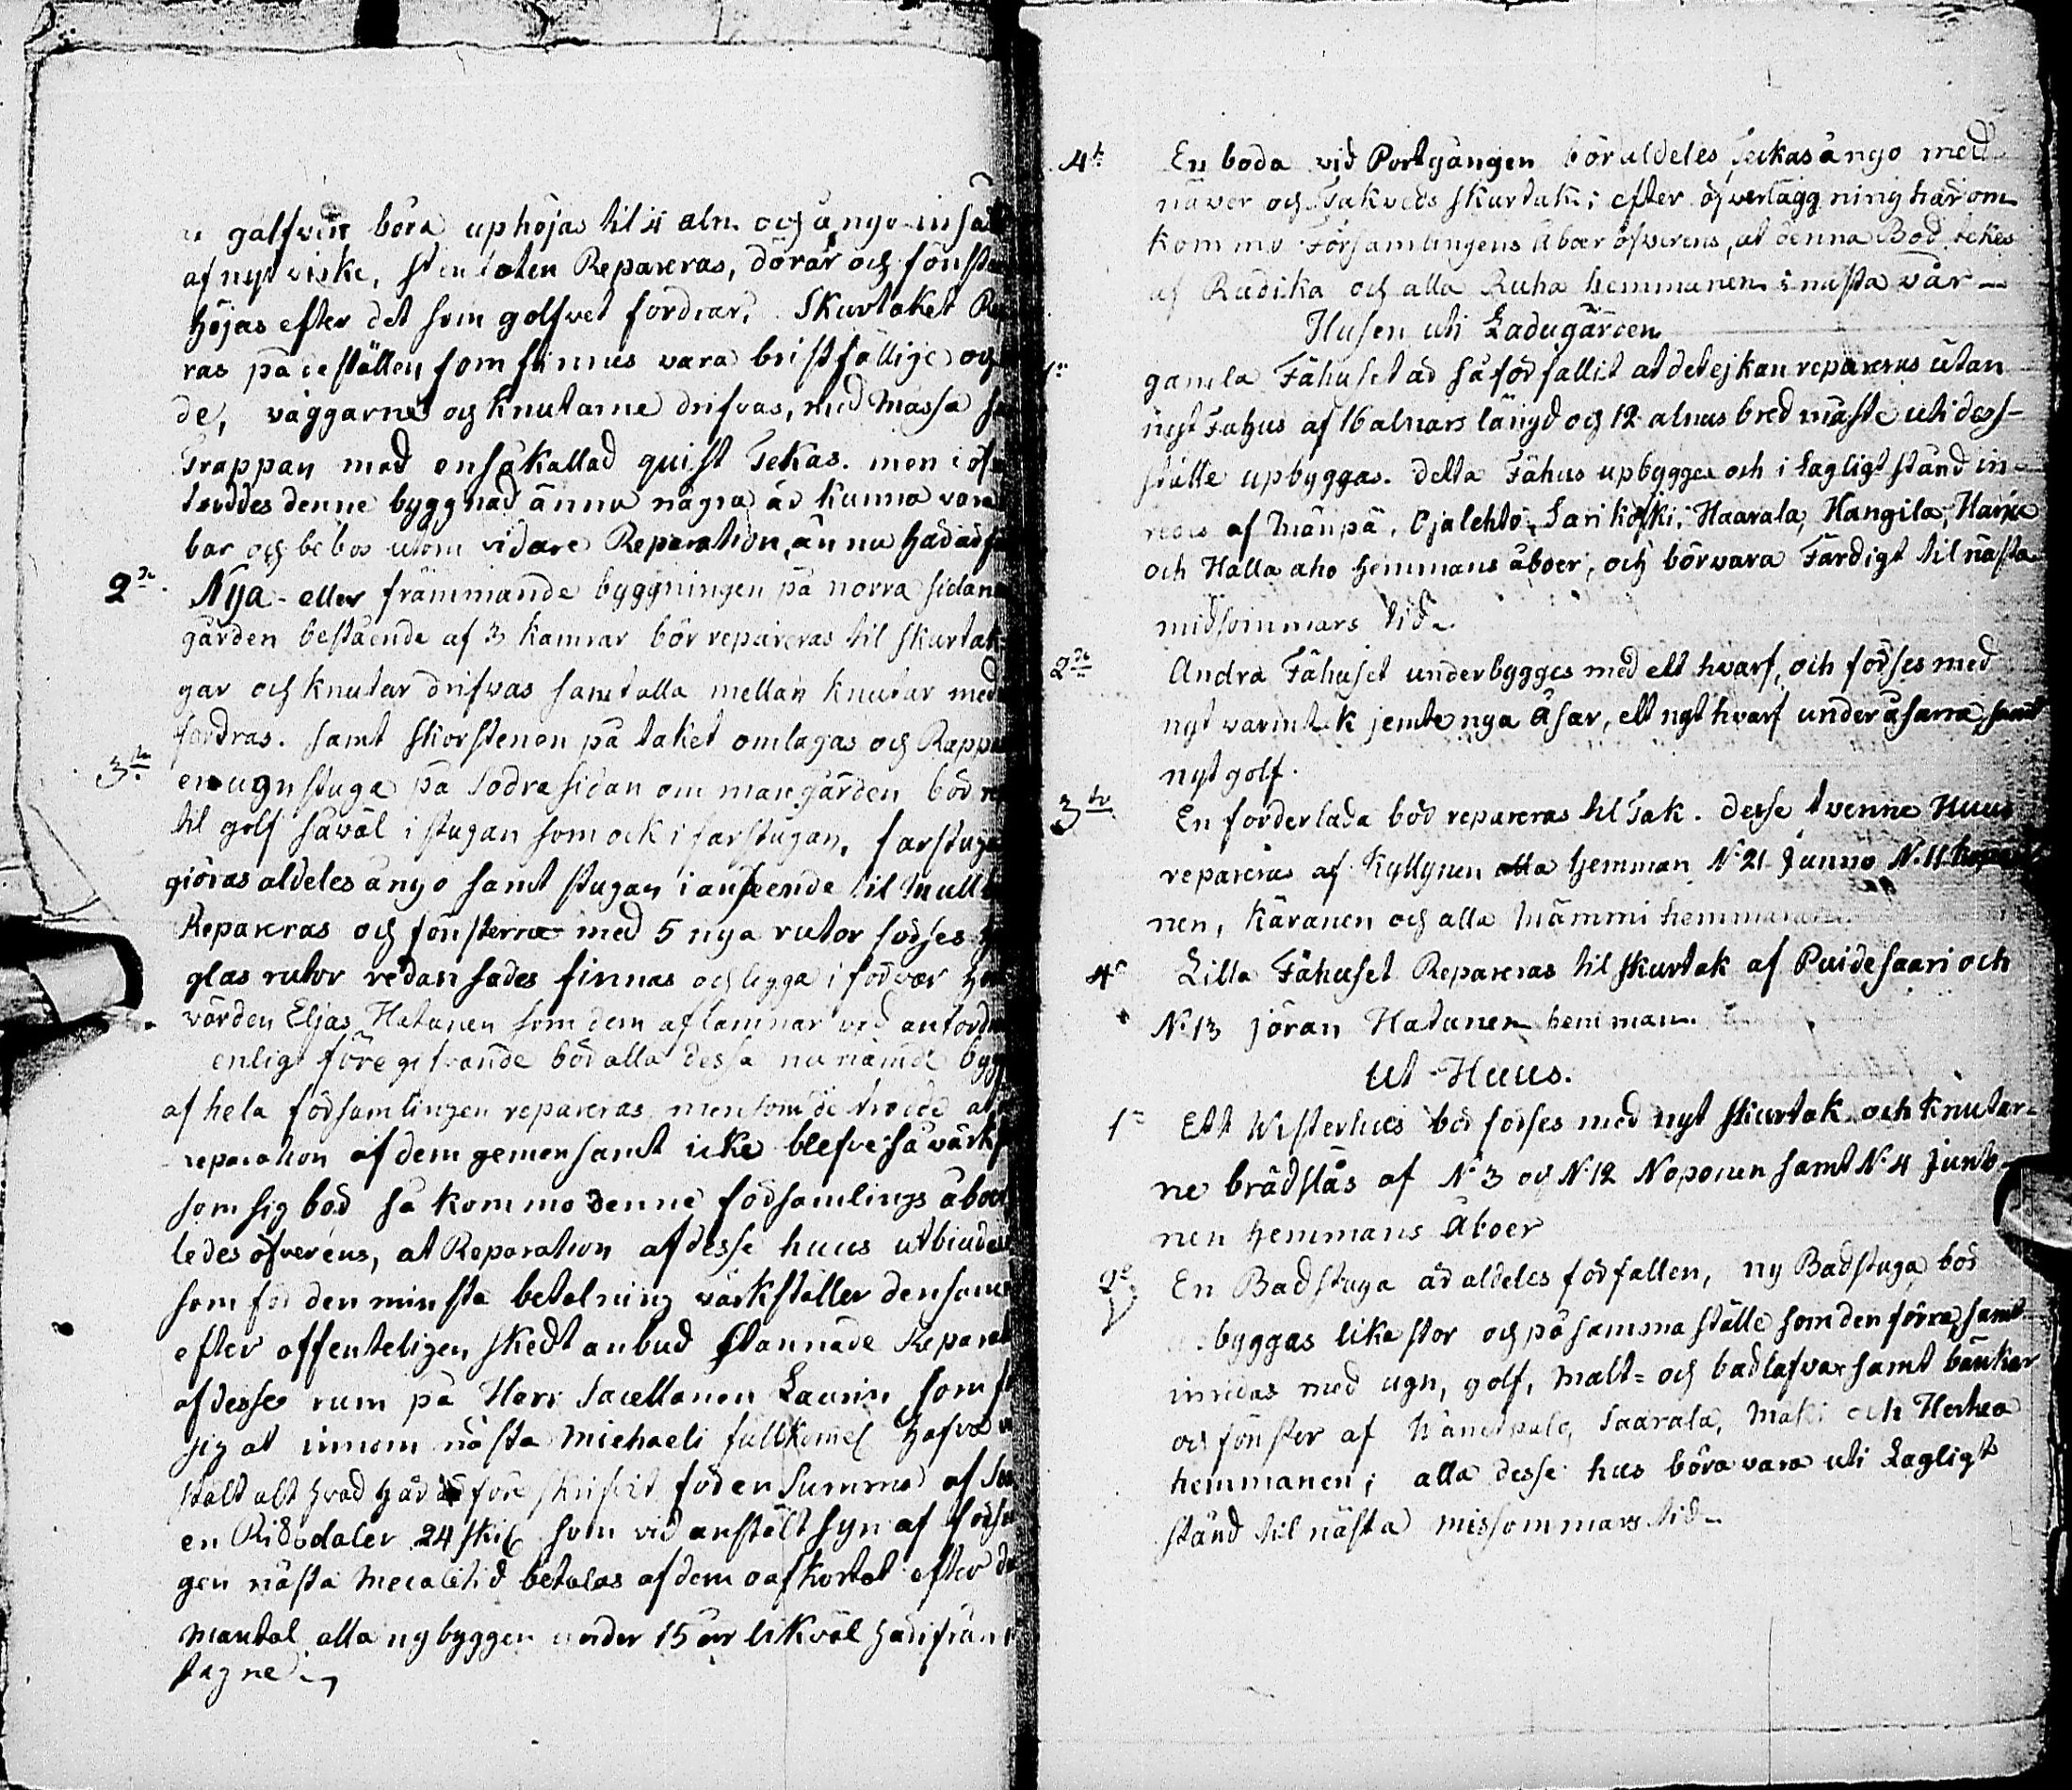 golfven böra uphöjas til 4 aln. och å nyo insät
af nyt virke, stenfoten Repareras, dörar och fönster
höjas efter det som golfvet fordrar, Skurtaket Re
ras på de ställen som finnes vara bristfällige och
de, väggarne och knutarne drifvas, med Måssa
Trappan med en så kallad quist Tekas. men i öf
troddes denne byggnad ännu några år kunna vara
bar och bebos utom vidare Reparation, än nu härad
2de Nya eller främmande byggningen på norra sidan
gården bestående af 3 kamrar bör repareras til skurtak
gar och knutar drifvas samt alla mellan knutar med
fordras. samt skorstenen på taket omlagas och Rappas
3de en ugnstuga på södra sidan om mangården bör re
til golf såväl i stugan som ock i farstugan, farstuga
giöras aldeles å nyo samt stugan i anseende til mull
Repareras och fönsterne med 5 nya rutor förses
glas rutor redan sades finnas och ligga i förvar
värden Eljas Hatunen som dem aflämnar vid anfordr
enligt föregifvande bör alla dessa nu nämde bygg
af hela församlingen repareras men som de trodde att
reparation af dem gemensamt icke blefve så värkst
som sig bör så kommo denne församlings åboer
ledes öfverens, at Reparation af desse huus utbiudes
som för den minsta betalning värkställer den samma
efter offenteligen skedt anbud stannade Reparat
af desse rum på Herr Sacellanen Laurin, som
sig at innom nästa Michaeli fullkomel hafva
stält alt hvad här före skrifvit för en Summa af
en Riksdaler 24 skil som vid anstält syn af försa
gen nästa Mecalitid betalas af dem oafkortat efter
mantal alla nybyggen under 15 år likväl härifrån
tagne
4de En boda vid Portgången bör aldeles teckas å nyo med
näver och Takveds skurtak; efter öfverläggning härom
kommo Församlingens Åboer öfverens, at denna Bod tekes
af Rudika och alla Ruha hemmanen i nästa vår
Husen uti Ladugården
1o gamla Fähuset är så förfallit at det ej kan repareras utan
nyt Fähus af 16 alnars längd och 12 alnars bred måste uti dess
ställe upbyggas. detta Fähus upbygges och i Lagligt stånd in
redes af Mänpä, Ojalehto, Sarikoski, Haarala, Kangila, Harju
och Halla aho hemmans åboer, och bör vara Färdigt til nästa
midsommars tid
2de Andra Fähuset underbygges med ett hvarf, och förses med
nyt varmtak jemte nya Åsar, ett nyt hvarf under åsarna, samt
nyt golf.
3de En foderlada bör repareras til Tak. desse tvenne Huus
repareras af Kyllynen hemman N:21 Junno N:11
nen, Käranen och alla Mämmi hemmanen
4o Lilla Fähuset Repareras til skurtak af Puidesaari och
N:13 jöran Hatunen hemman.
Ut-Huus.
1o Ett Wisterhus bör förses med nyt skurtak och knutar-
ne brädslås af N:3 och N:12 Noponen samt N:4 Junto-
nen hemmans Åboer
2o En Badstuga är aldeles förfallen, ny Badstuga bör
byggas lika stor och på samma ställe som den förra, samt
inredas med ugn, golf, malt= och badlafvar samt bänkar
och fönster af Saarala, Mäki och Herhea
hemmanen; alla desse hus böra vara uti Lagligt
stånd til nästa missommars tid